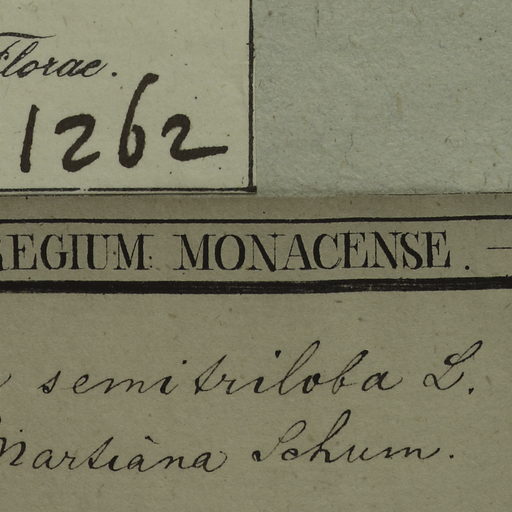 Florae.
1262
REGIUM MONACENSE.
semitriloba L.
Martiàna Schum.